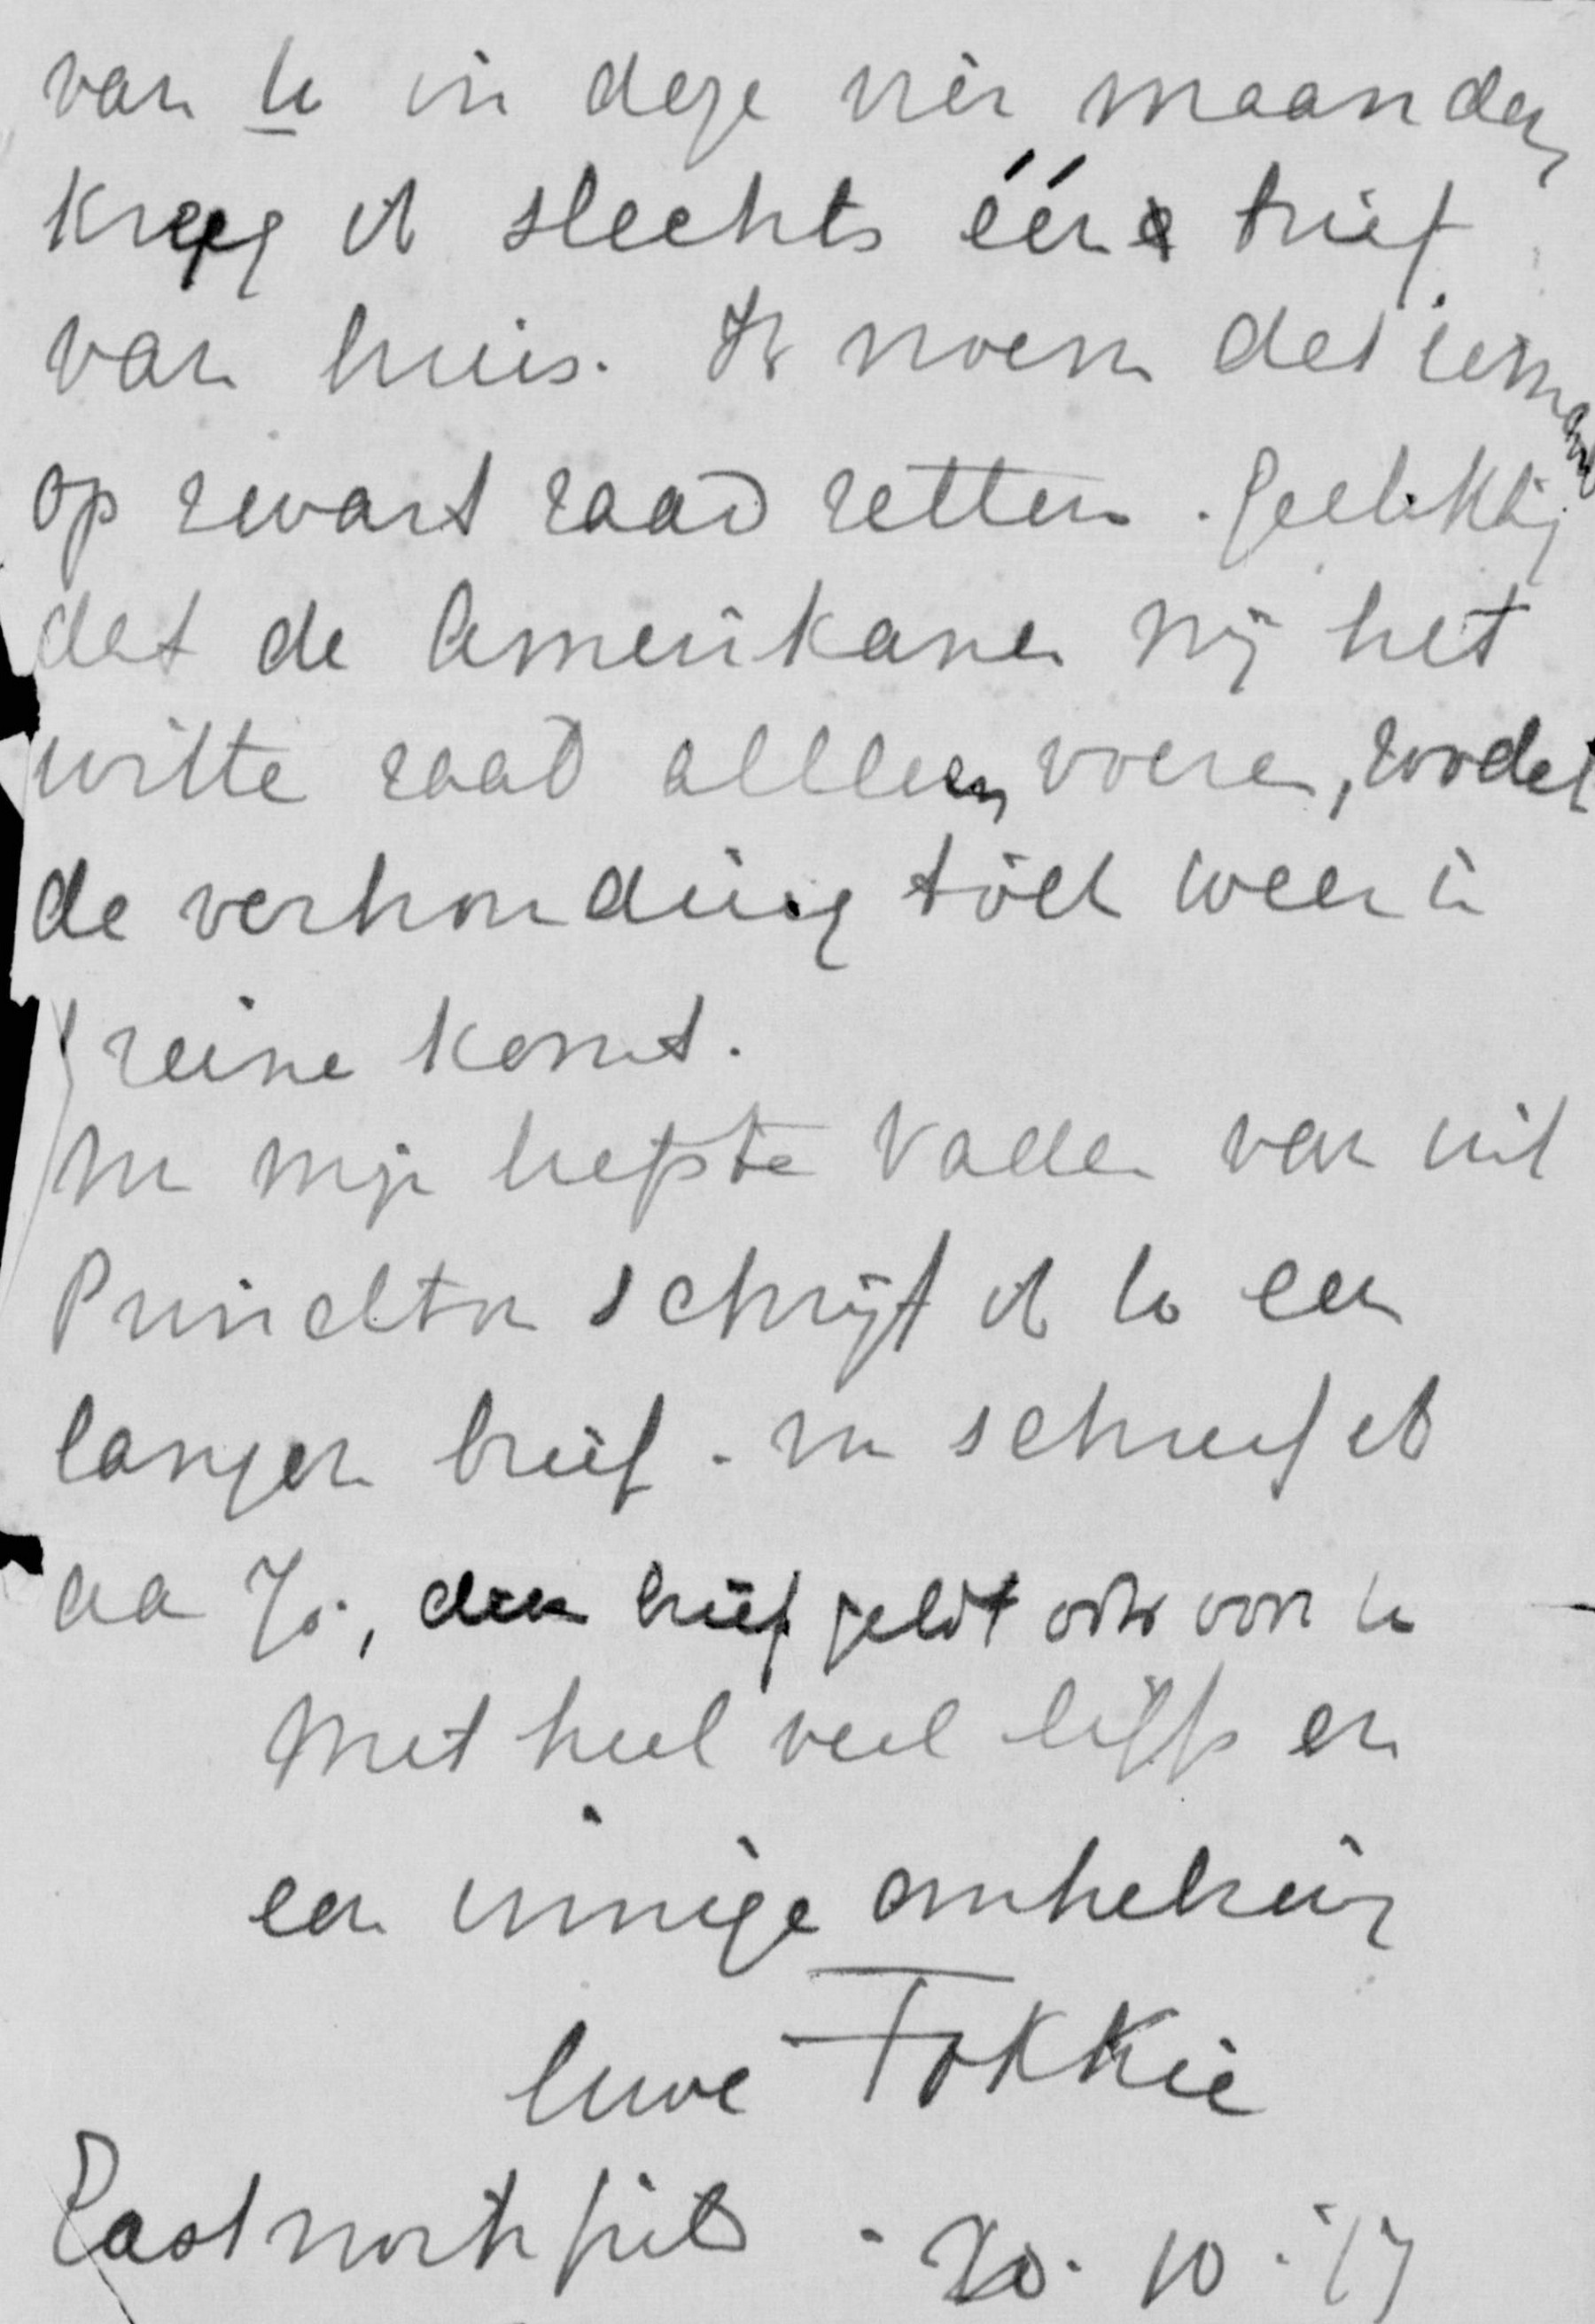 van U in deze vier maanden
kreeg ik slechts één brief
van huis. Ik noem dat iemand
op zwart zaad zetten. Gelukkig
dat de Amerikanen mij het
witte zaad allleen voeren, zoodat
de verhouding töch weer in
't reine komt.
Nu mijn liefste Vader van uit
Princeton schrijf ik U een
langen brief. Nu schreef ik
aan Jo, deze brief geldt ook voor U
Met heel veel liefs en
een innige omhelzing
Uwe Fokkie
East Northfield - 20. 10. '17